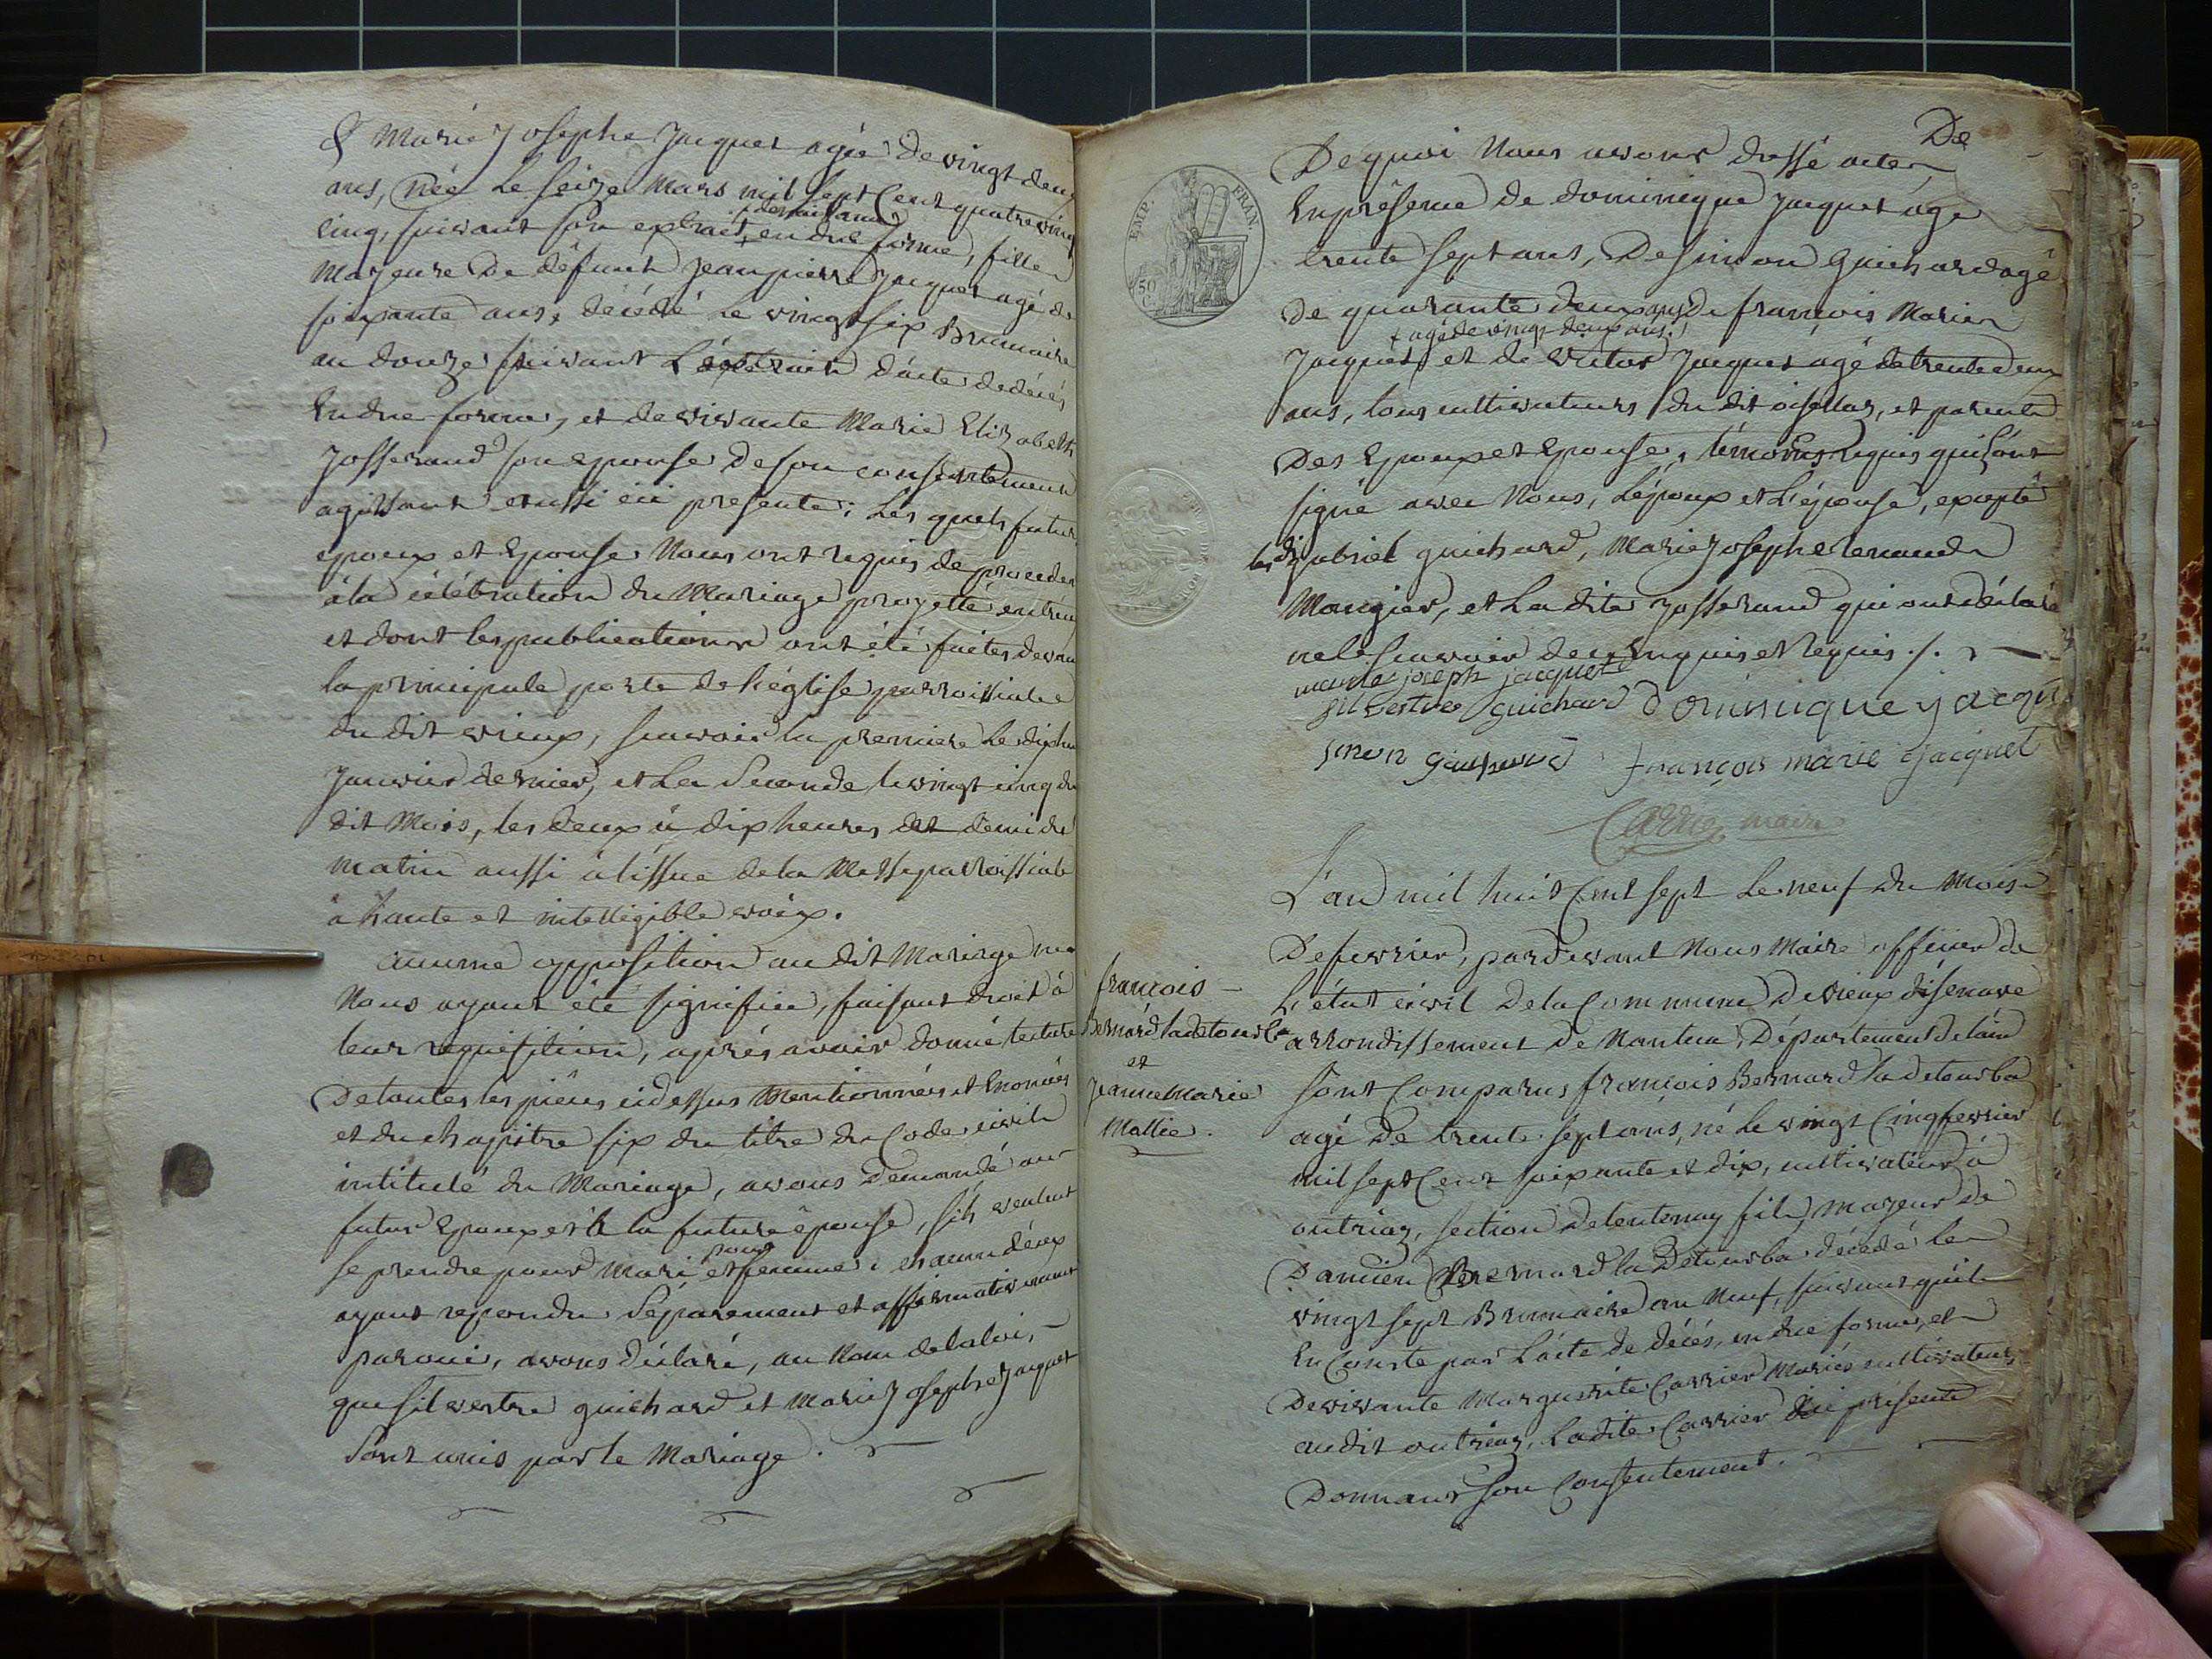 & Marie Josephe Jacquet agée de vingt deux
ans, née le seize Mars mil sept Cent quatre vingt
cinq, suivant son extrait + en due forme, fille
+ de naissance
Majeure De défunt Jean pierre Jacquet agé de
soixante ans, décédé le vingt six Brumaire
an douze suivant L'extrait d'acte de décés
En due forme, et de vivante Marie Elizabeth
Josserand son epouse de son consentement
agissant et aussi ici presente; Les quels futurs
epoux et Epouse Nous ont requis de proceder
à la célébration du Mariage projetté entr'eux
et dont les publications ont été faites devant
la principale porte de l'église parroissiale
du dit vieux, scavoir la premiere le dix huit
Janvier dernier, et La Seconde le vingt cinq du
dit Mois, les deux à dix heures et demi du
matin aussi à l'issue de la Messe parroissiale
à haute et intelligible voix.
aucune opposition au dit Mariage ne
Nous ayant été signifiée, faisant droit à
leur requisition, aprés avoir donné lecture
De toutes les piéces cidessus Mentionnées et Enoncées
et du chapitre six du titre du Code civil
intitulé du Mariage, avons Demandé au
futur Epoux et à la future épouse, s'ils veulent
se prendre pour Mari et pour femme; chacun d'eux
ayant repondu Séparement et affirmativement
par oui, avons déclaré, au Nom de la loi,
que silvestre guichard et Marie Josephe Jacquet
sont unis par le Mariage.
De
De quoi Nous avons dressé acte
En présence de dominique Jacquet agé
trente sept ans, De simon Guichard agé
De quarante deux ans, de françois Marie
+ agé de vingt deux ans
Jacquet + et de victor Jacquet agé de trente deux
ans, tous cultivateurs du dit oisellaz, et parents
Des Epoux et Epouse, témoins requis qui ont
signé avec Nous, L'époux et L'épouse, excepté
les dits gabriel guichard, Marie Josephe
Mangier, et La dite Josserand qui ont déclaré
ne le scavoir de ce Enquis et Requis ./.
marie joseph jacquet
silvestre guichard dominique jacquet
simon guichard françois marie jacquet
Carrier maire
L'an mil huit Cent sept le neuf du Mois
De fevrier, pardevant Nous Maire officier de
L'état civil De la Commune De vieux d'isenave
arrondissement de Nantua Département de l'ain
sont Comparus françois Bernard la detourba
agé De trente sept ans, né le vingt Cinq fevrier
mil sept Cent soixante et dix, cultivateur à
outriaz, section de lentenay fils majeur de
Damien Bernard la Detourba décédé le
vingt sept Brumaire an Neuf, suivant qu'il
En Conste par L'acte de décés, en due forme, et
De vivante Marguerite Carrier Mariés cultivateurs
audit outriaz, Ladite Carrier ici présente
Donnant son Consentement.
françois
Bernard ladetourba
et
Jeanne Marie
Mallie.
EMP. FRAN.
50 C.